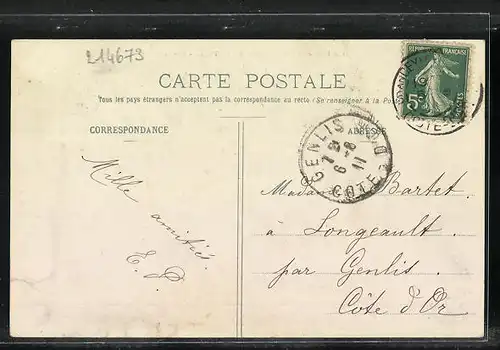 214673
CARTE POSTALE
Tous les pays étrangers n'acceptent pas la correspondance au recto (Se renseigner à la Poste)
CORRESPONDANCE
ADRESSE
RÉPUBLIQUE FRANÇAISE
5c
POSTES
GENLIS
6 -8
11
COTE D'OR
Mille
amitiés
E. P.
Madame Bartet
à Longeault
par Genlis
Côte d'Or